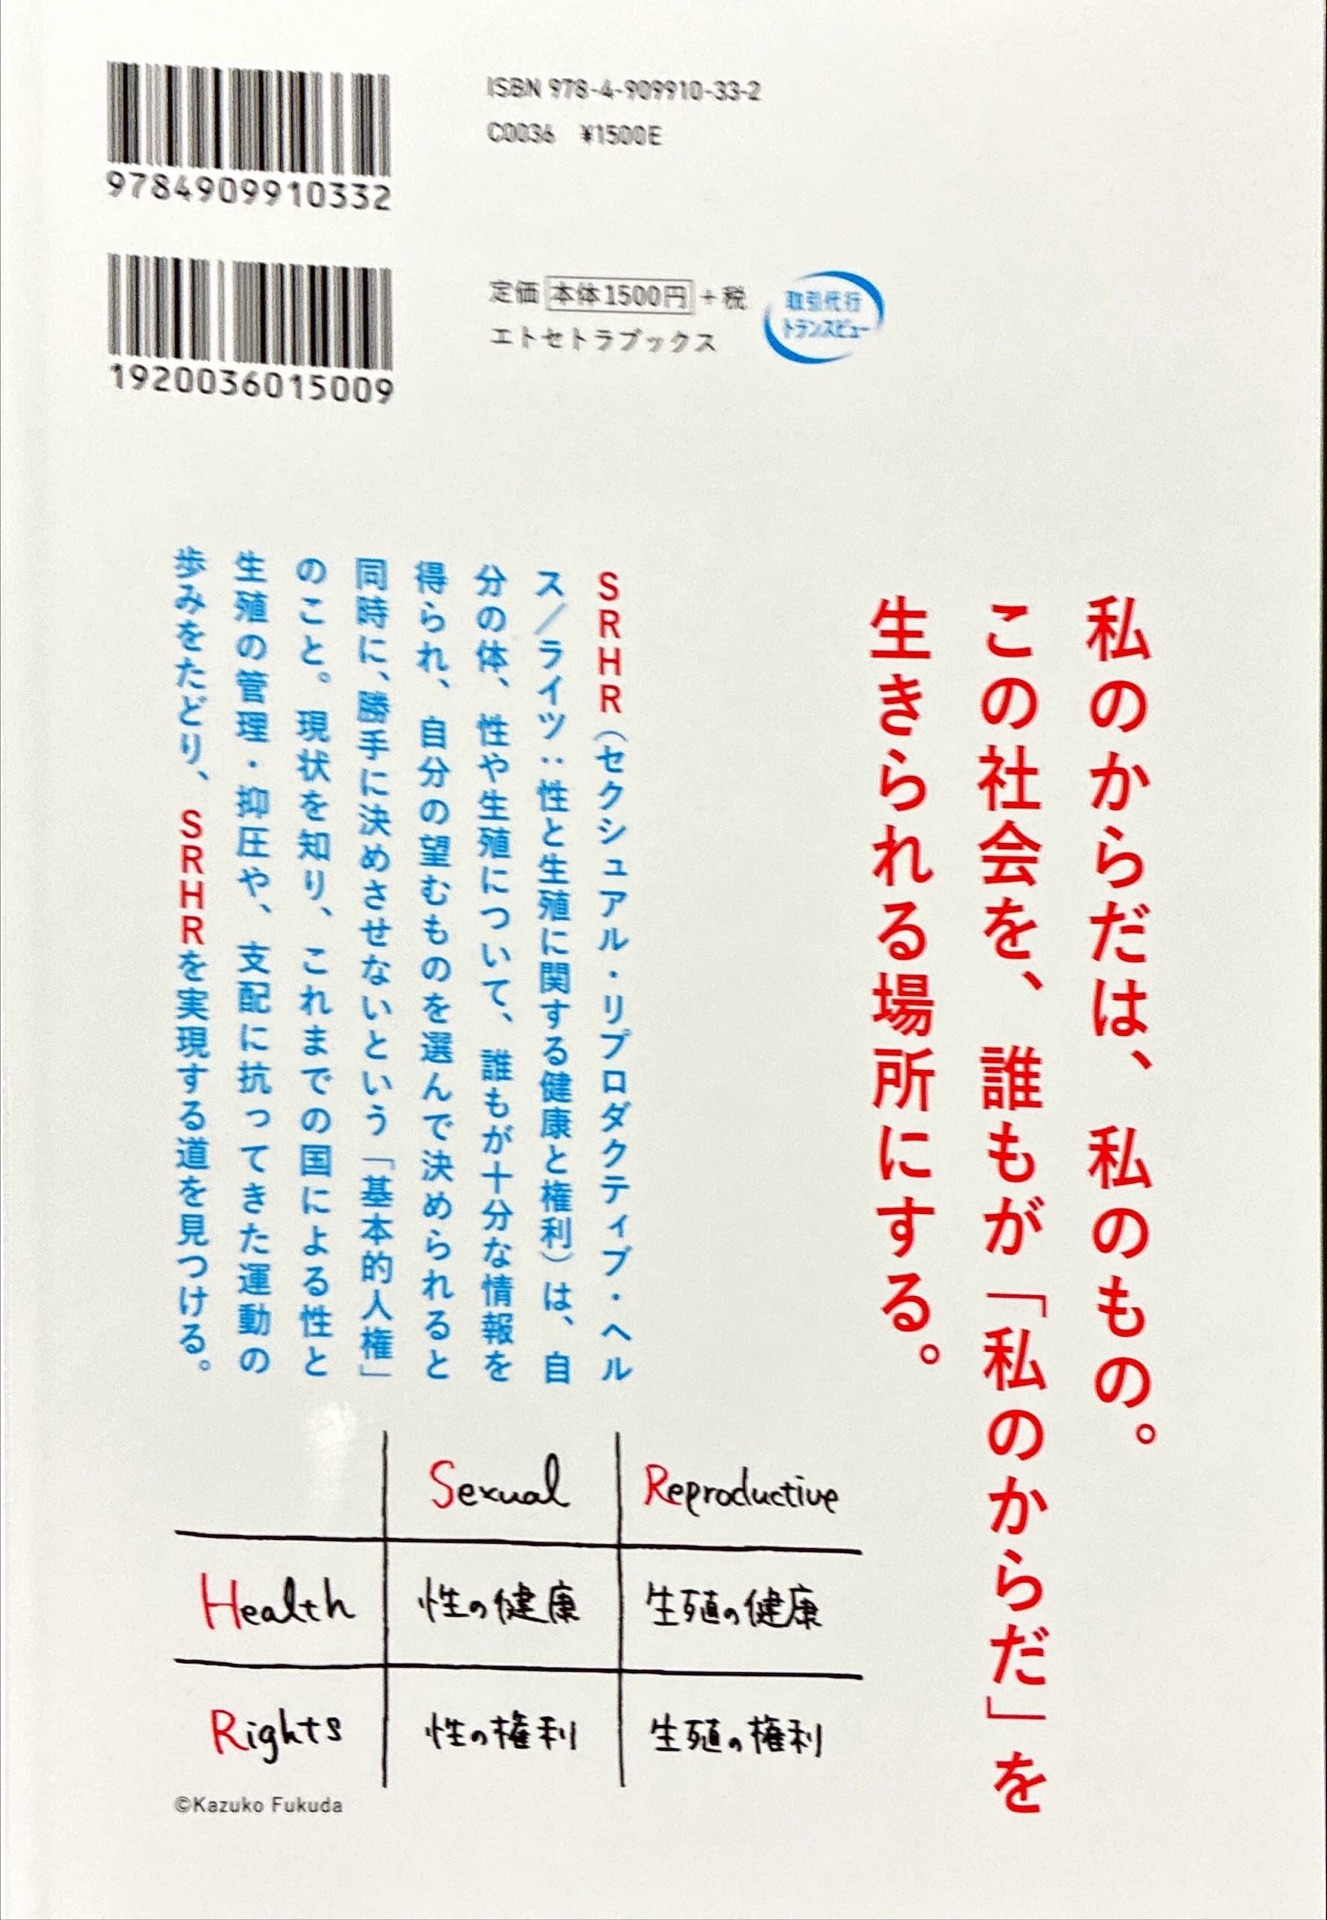 9784909910332
ISBN 978-4-909910-33-2
C0036 ¥1500E
1920036015009
定価 本体1500円 +税
エトセトラブックス
取引代行
トランスビュー
私のからだは、私のもの。
この社会を、誰もが「私のからだ」を
生きられる場所にする。
SRHR（セクシュアル・リプロダクティブ・ヘル
ス／ライツ：性と生殖に関する健康と権利）は、自
分の体、性や生殖について、誰もが十分な情報を
得られ、自分の望むものを選んで決められると
同時に、勝手に決めさせないという「基本的人権」
のこと。現状を知り、これまでの国による性と
生殖の管理・抑圧や、支配に抗ってきた運動の
歩みをたどり、SRHRを実現する道を見つける。
Sexual Reproductive
Health 性の健康 生殖の健康
Rights 性の権利 生殖の権利
©Kazuko Fukuda